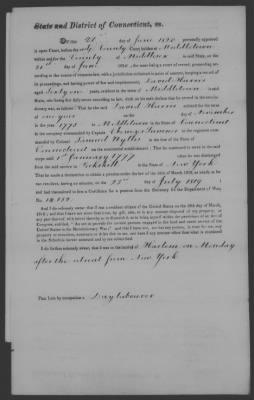 State and District of Connecticut, ss.
On this 21st day of June 1820 personally appeared
in open Court, before the County Court holden at Middletown
within and for the County of Middlesex on said
21st day of June the same being a court of record, proceeding ac-
cording to the course of common law, with a jurisdiction unlimited in point of amount, keeping a record of
its proceedings, and having power of fine and imprisonment,
aged Sixty one years, resident in the town of Middletown in said
State, who being duly sworn according to law, doth on his oath declare that he served in the revolu-
tionary war, as follows: That he the said entered for the term
of one year on the day of November
in the year 1775 in Middletown in the State of Connecticut
in the company commanded by Captain Ebenezer Sumner in the regiment com-
manded by Colonel Samuel Wyllis in the line of the State of
Connecticut on the continental establishment: That he continued to serve in the said
corps until 1st January 1777 when he was discharged
from the said service in Peekskill in the State of New York
That he made a declaration to obtain a pension under the law of the 18th of March 1818, as stated in
on the 25th day of July 1819
and had transmitted to him a Certificate for a pension from the Secretary for the Department of War,
No. 13.
And I do solemnly swear that I was a resident citizen of the United States on the 18th day of March,
1818; and that I have not since that time, by gift, sale, or in any manner disposed of my property, or
any part thereof, with intent thereby so to diminish it as to bring myself within the provisions of an Act of
Congress, entitled, "An act to provide for certain persons engaged in the land and naval service of the
United States in the Revolutionary War;" and that I have not, nor has any person, in trust for me, any
property or securities, contracts or debts due to me, nor have I any income other than what is contained
in the Schedule hereto annexed and by me subscribed.
I do further solemnly swear, that I was in the battle of Harlem on Monday
after the retreat from New York
That I am by occupation a Day labourer